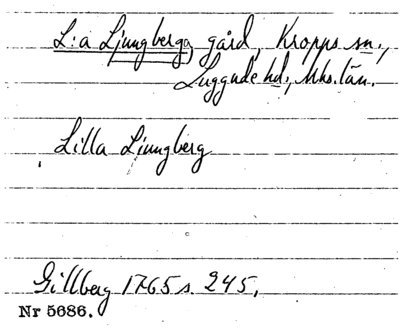 L:a Ljungberga, gård, Kropps sn.,
Luggude hd., Mhs. län.
Lilla Liungberg
Gillberg 1765 s. 245.
Nr 5686.